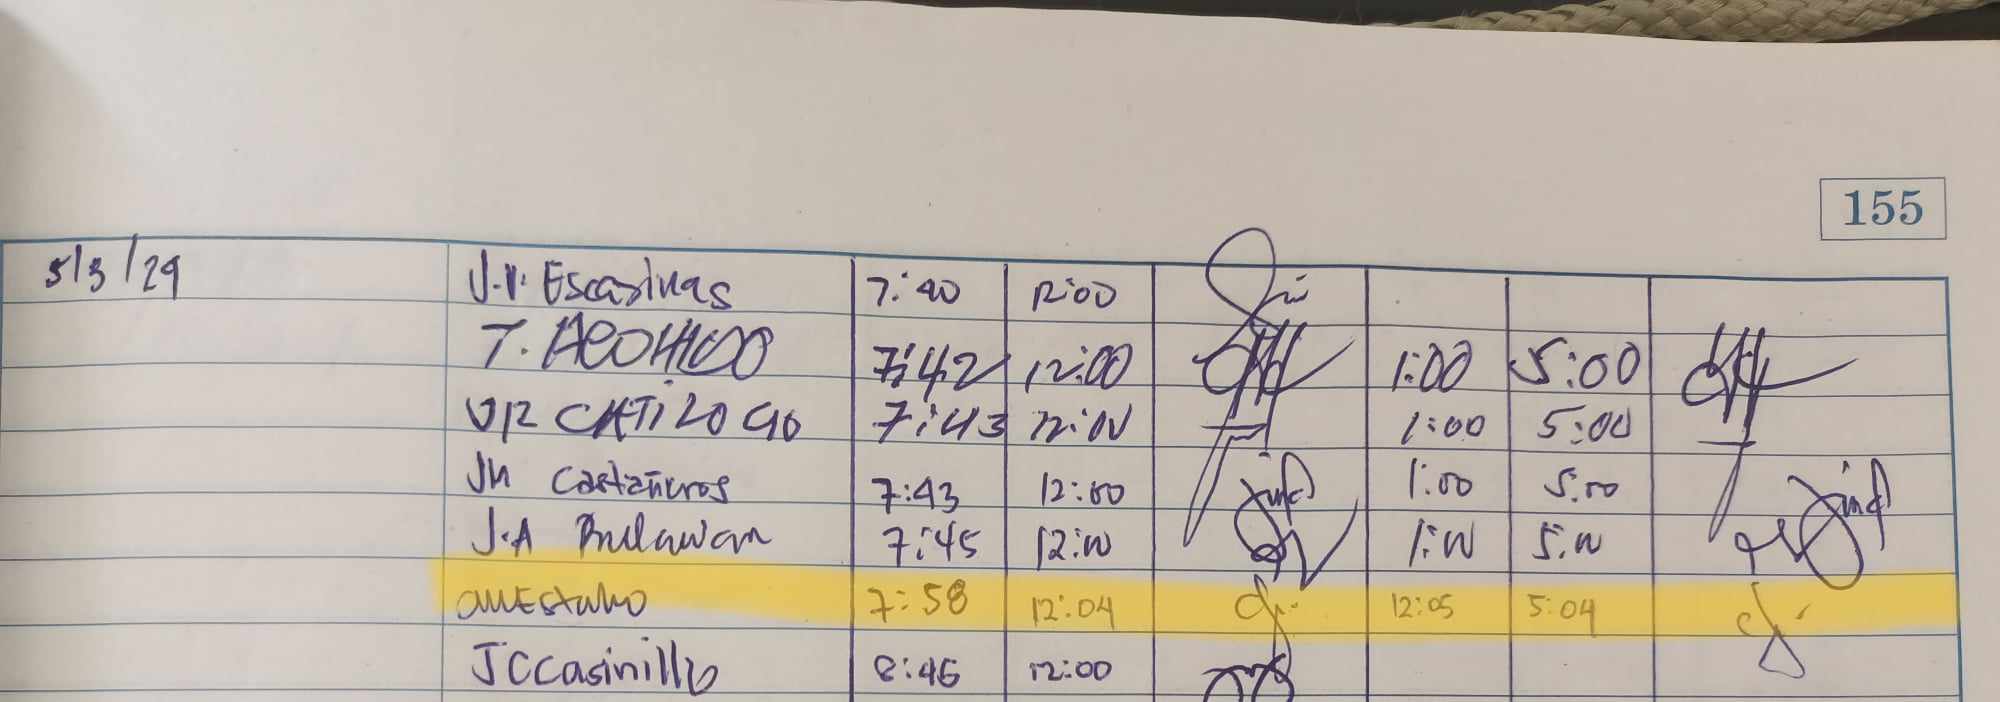 155
5/3/29 J.V. Escasinas 7:40 12:00
T. 7:42 12:00 1:00 5:00
7:43 12:00 1:00 5:00
JM Castañeros 7:43 12:00 1:00 5:00
J.A Bulawan 7:45 12:00 1:00 5:00
7:58 12:04 12:05 5:04
JCCasinillo 8:45 12:00